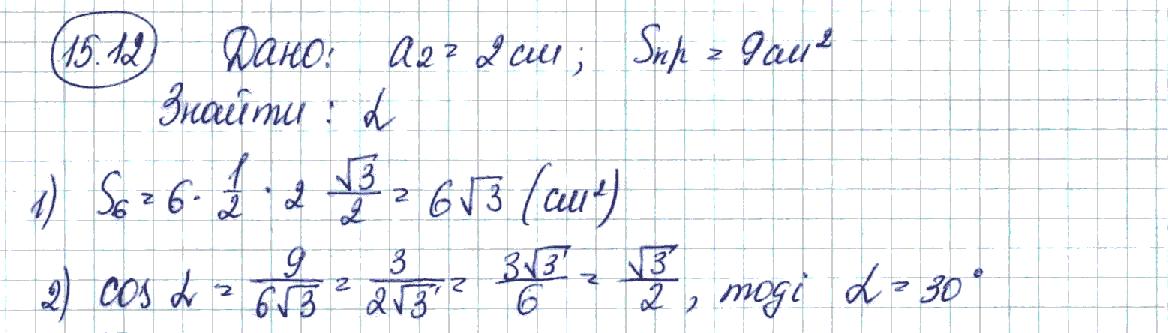 15.12 Дано: a2 = 2 см; Sпр = 9 см²
Знайти: α
1) S6 = 6 · 1/2 · 2 √3/2 = 6√3 (см²)
2) cos α = 9/6√3 = 3/2√3 = 3√3/6 = √3/2, тоді α = 30°